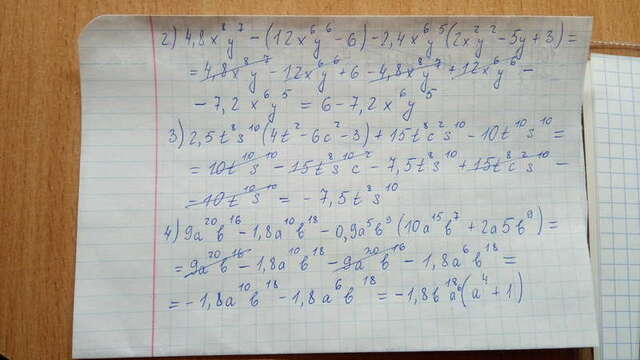 2) 4,8x⁸y⁷ - (12x⁶y⁶ - 6) - 2,4x⁶y⁵(2x²y² - 5y + 3) =
= 4,8x⁸y⁷ - 12x⁶y⁶ + 6 - 4,8x⁸y⁷ + 12x⁶y⁶ -
- 7,2x⁶y⁵ = 6 - 7,2x⁶y⁵
3) 2,5t⁸s¹⁰(4t² - 6c² - 3) + 15t⁸c²s¹⁰ - 10t¹⁰s¹⁰ =
= 10t¹⁰s¹⁰ - 15t⁸s¹⁰c² - 7,5t⁸s¹⁰ + 15t⁸c²s¹⁰ -
- 10t¹⁰s¹⁰ = - 7,5t⁸s¹⁰
4) 9a²⁰b¹⁶ - 1,8a¹⁰b¹⁸ - 0,9a⁵b⁹(10a¹⁵b⁷ + 2a5b⁹) =
= 9a²⁰b¹⁶ - 1,8a¹⁰b¹⁸ - 9a²⁰b¹⁶ - 1,8a⁶b¹⁸ =
= - 1,8a¹⁰b¹⁸ - 1,8a⁶b¹⁸ = - 1,8b¹⁸a⁶(a⁴ + 1)